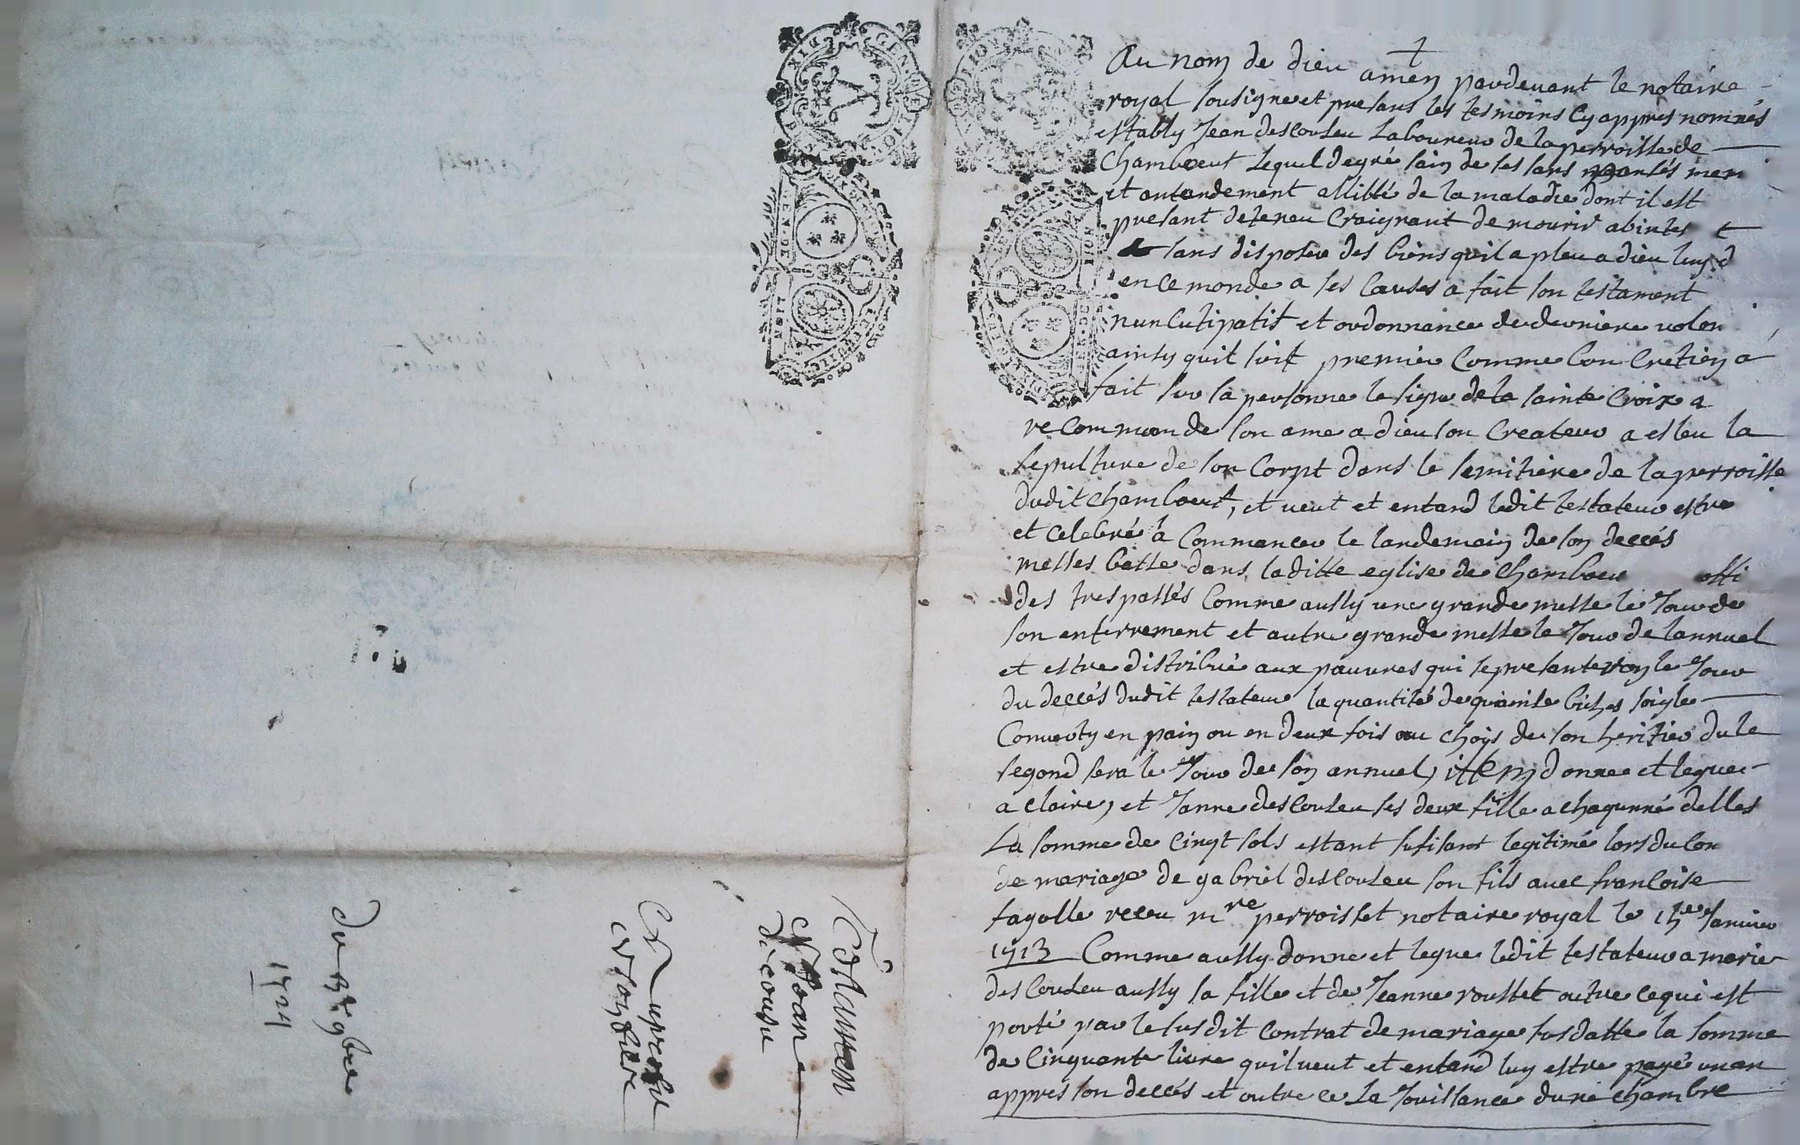 Au nom de dieu amen pardevant le notaire
royal sousigné et presans les tesmoins cy appres nommés
estably Jean descouleu Laboureur de la perroisse de
Chambœuf lequel degré sain de ses sans mem
et antandement allitté de la maladie dont il est
presant deteneu craignant de mourir abintes t
sans disposer des biens quil a pleu a dieu luy d
en ce monde a ses causes a fait son testament
nuncutipatif et ordonnance de derniere volon
ainsy quil suit premier comme bon cretien a
fait sur sa personne le signe de la sainte croix a
recommande son ame a dieu son createur a esleu la
sepulture de son corpt dans le semitiere de la perroisse
dudit chambœuf, et veut et entand ledit testateur estre
et celebré à commancer le landemain de son deccés
messes basse dans laditte eglise de chamboeu offi
des trespassés comme aussy une grande messe le Jour de
son enterrement et autre grande messe le Jour de lannuel
et estre distribué aux pauvres qui se presanteron le Jour
du deccés dudit testateur la quantité de quainse biches soigle
converty en pain ou en deux fois au chois de son heritier dule
segond sera le Jour de son annuel, item donne et legue
a claire, et Janne descouleu ses deux fille a chaqunne delles
La somme de cinqt sols estant sufisant legitimé lors du con
de mariage de gabriel descouleu son fils avec francoise
fagolle receu mre perroisset notaire royal le 15e Janvier
1713 Comme aussy donne et legue ledit testateur a marie
descouleu aussy sa fille et de Jeanne rousset outre ce qui est
porté par le susdit contrat de mariage susdatte la somme
de cinquante livre quil veut et entand luy estre payé un an
appres son deccés et outre ce La Jouissance dune chambre
Testamen
de cousu
du 9bre
1724